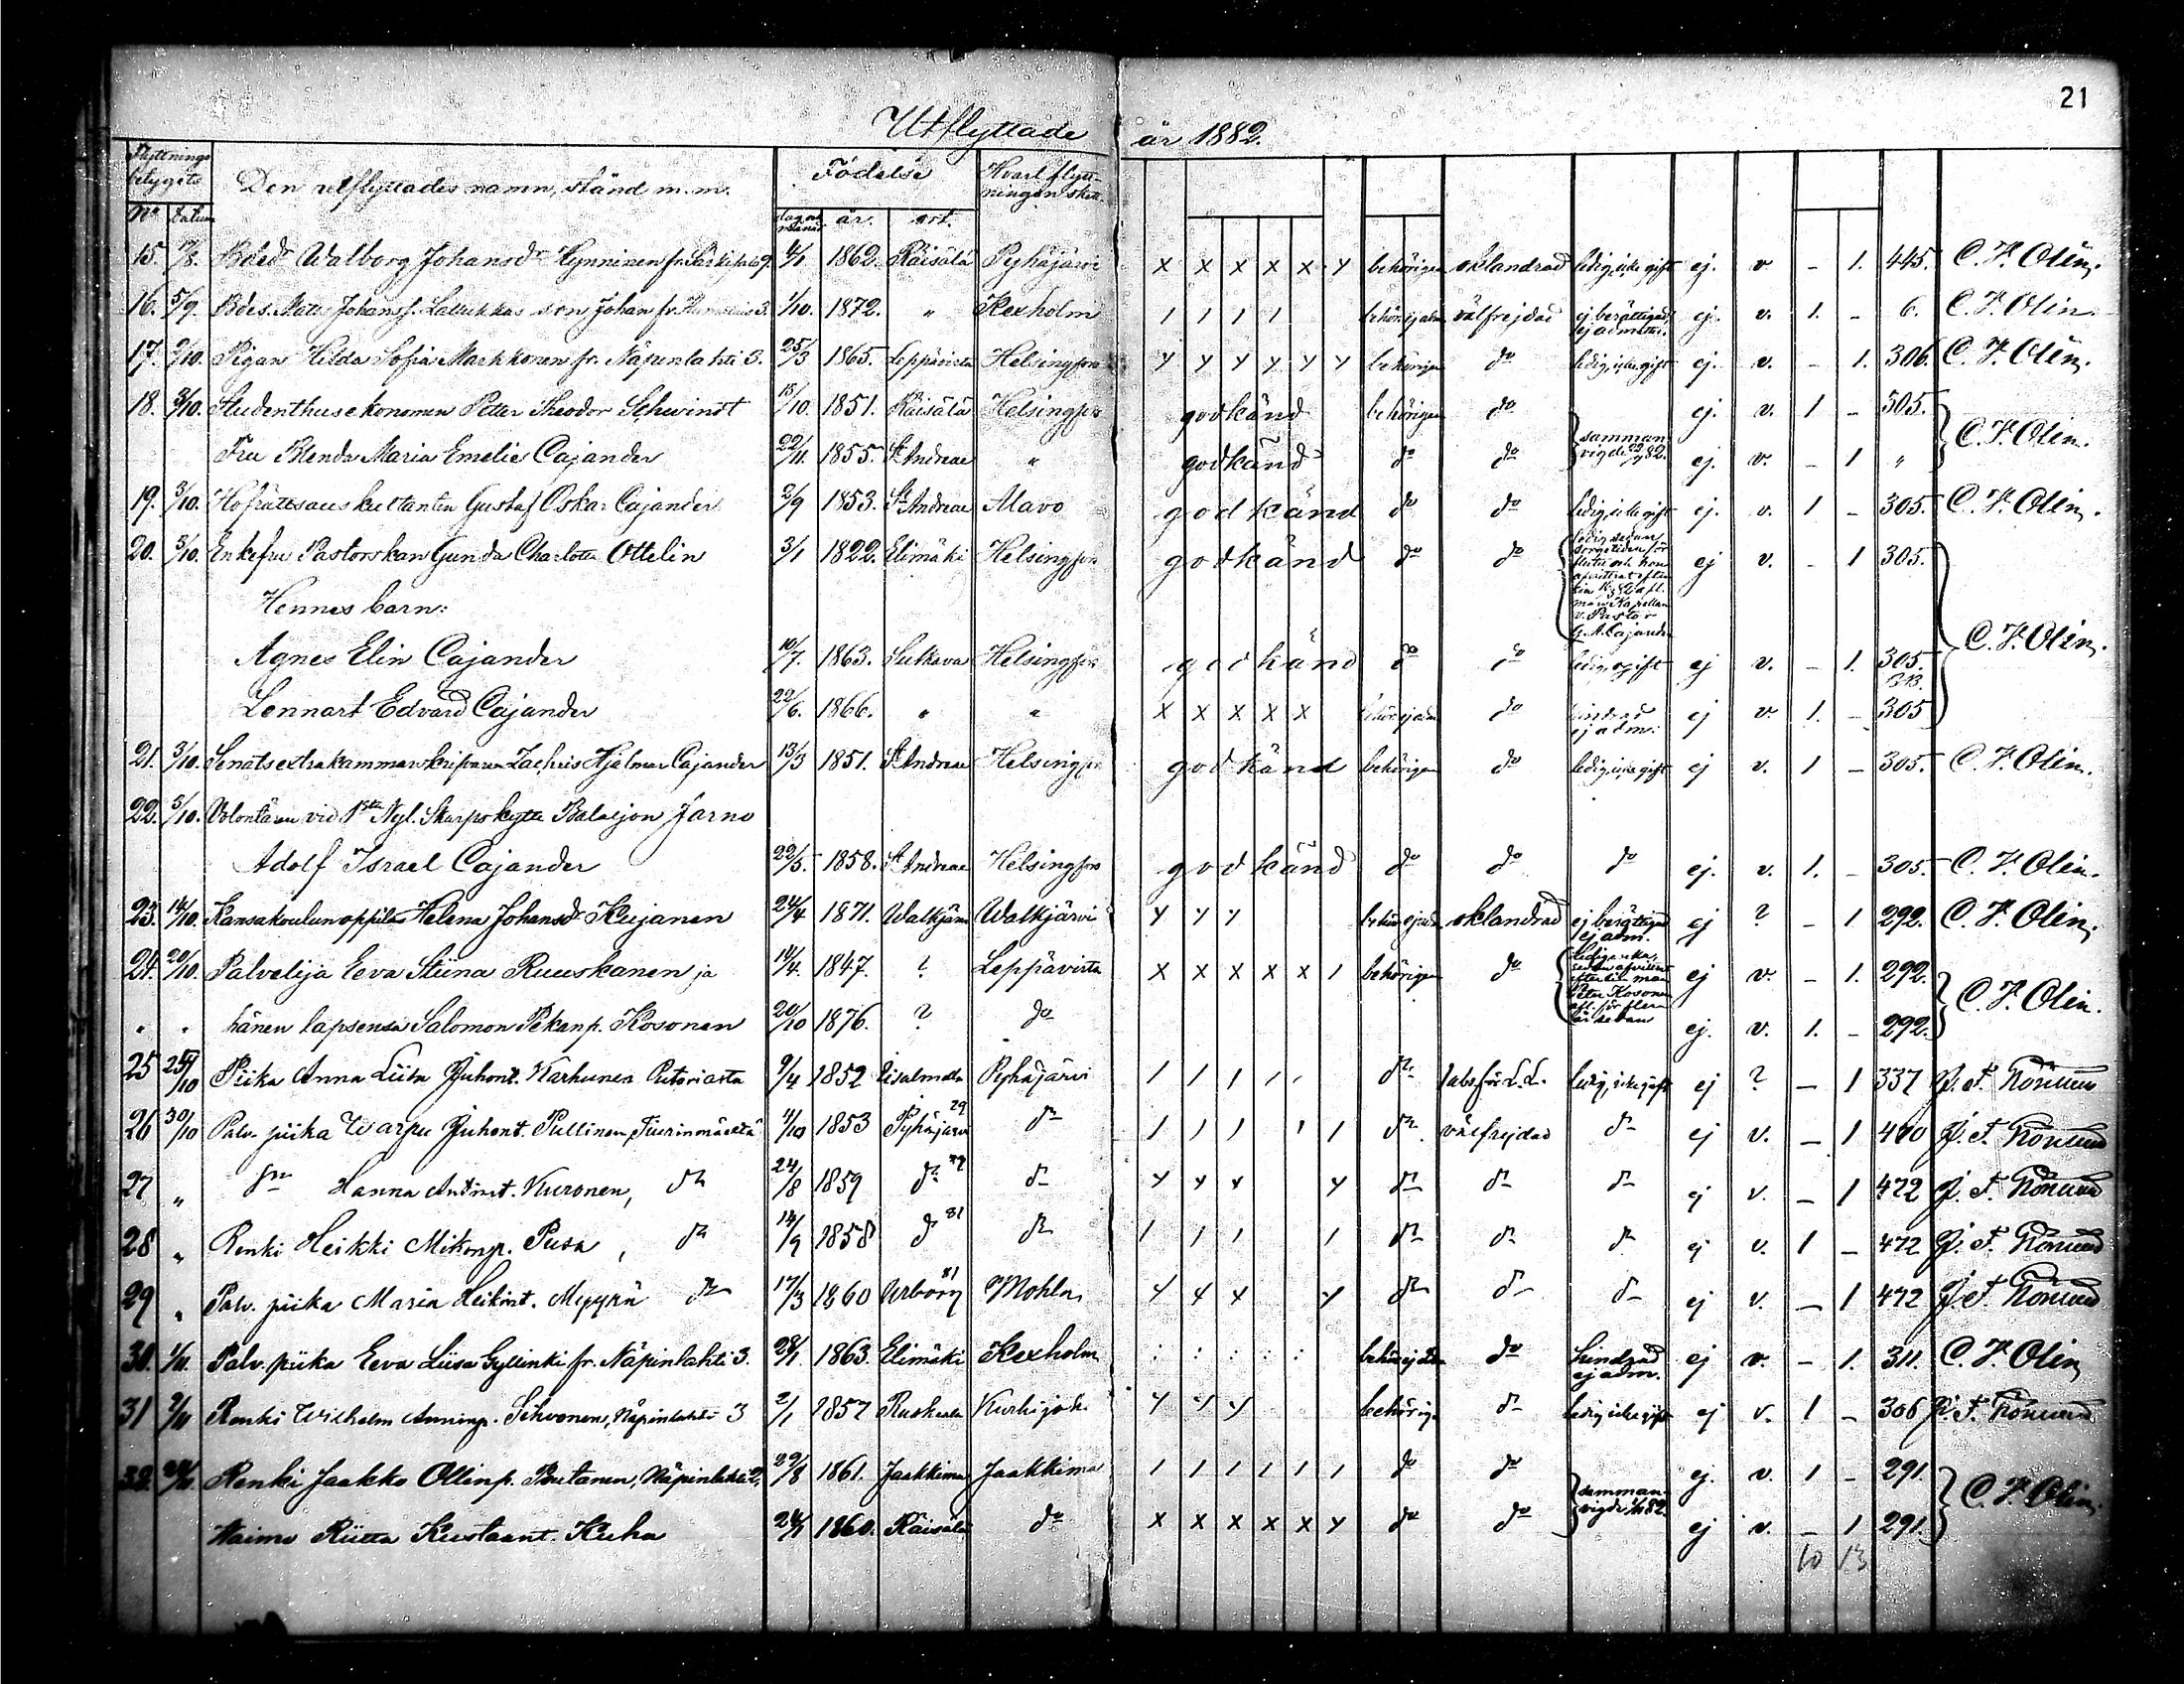 21
Utflyttade år 1882.
Flyttnings betygets Den utflyttades namn, stånd m. m. Födelse Hvart flyttningen skett.
No datum dag och månad år. ort.
15. 17/8. Walborg Johansdr Hynninen fr. 4/1 1862. Räisälä Pyhäjärvi x x x x x y behörigen oklandrad ledig, icke gift ej. v. - 1. 445. C. F. Olin.
16. 5/9. Johansf. Lallukkas son Johan fr. 3. 1/10. 1872. " Kexholm / / / / behör. ej adm. välfrejdad ej berättigad, ej admitt. ej. v. 1. - 6. C. F. Olin.
17. 2/10. Pigan Hilda Sofia Markkonen fr. Näpinlahti 3. 25/3 1865. Leppävirta Helsingfors y y y y y y behörigen do ledig, icke gift ej. v. - 1. 306. C. F. Olin.
18. 3/10. Studenthusekonomen Peter Theodor Schwindt 15/10. 1851. Räisälä Helsingfors godkänd behörigen do ej. v. 1 - 305.
Fru Blenda Maria Emelie Cajander 22/11. 1855. St Andreae " godkänd do do samman vigde 22/9 82. ej. v. - 1 " C. F. Olin.
19. 3/10. Hofrättsauskultanten Gustaf Oskar Cajander 2/9 1853. St Andreae Alavo godkänd do do ledig, icke gift ej. v. 1 - 305. C. F. Olin.
20. 3/10. Enkefru Pastorskan Gunda Charlotta Ottelin 3/1 1822. Elimäki Helsingfors godkänd do do ledig sedan sorgetiden för G. A. Cajander ej v. - 1 305.
Hennes barn:
Agnes Elin Cajander 10/7. 1863. Sulkava Helsingfors godkänd do do ledig, ogift ej v. - 1. 305. 313. C. F. Olin.
Lennart Edvard Cajander 22/6. 1866. " " x x x x x behör. ej adm do hindrad ej adm: ej v. 1. - 305
21. 3/10. Senatsextrakammarskrifvaren Zachris Hjalmar Cajander 13/3 1851. St Andreae Helsingfors godkänd behörigen do ledig, icke gift ej v. 1 - 305. C. F. Olin.
22. 3/10. Volontären vid 1sta Nyl. Skarpskytte Bataljon Jarno
Adolf Israel Cajander 22/5. 1858. St Andreae Helsingfors godkänd do do do ej. v. 1. - 305 C. F. Olin.
23. 14/10. Kansakoulunoppilas Helena Johansdr Kujanen 24/4 1871. Walkjärvi Walkjärvi y y y behör. ej adm oklandrad ej berättigad ej adm. ej ? - 1 292. C. F. Olin.
24. 20/10. Palvelija Eeva Stiina Ruuskanen ja 14/4. 1847. ? Leppävirta x x x x x / behörigen do ej v. - 1. 292.
" " hänen lapsensa Salomon Pekanp. Kosonen 20/10 1876. ? do ej. v. 1. - 292. C. F. Olin.
25 25/10 Piika Anna Liisa Juhont. Karhunen 9/4 1852 Iisalmella Pyhäjärvi / / / / / do ledig, icke gift ej ? - 1 337
26 30/10 Palv. piika Warpu Juhont. Pullinen, Tiurinmäeltä 4/10 1853 Pyhäjärvi 79 do / / / / / do välfrejdad do ej v. - 1 470
27 " do Hanna Antint. Kuronen, do 24/8 1859 do 79 do y y y y do do do ej v. - 1 472
28 " Renki Heikki Mikonp. Pusa, do 14/9 1858 do 81 do / / / / do do do ej v. 1 - 472
29 " Palv. piika Maria Heikint. Myyrä do 17/3 1860 Wiborg 81 Mohla y y y y do do do ej v. - 1 472
30. 1/11. Palv. piika Eeva Liisa Gyllinki fr. Näpinlahti 3. 28/1. 1863. Elimäki Kexholm : : : : : behör. ej adm do hindrad ej adm. ej v. - 1. 311. C. F. Olin
31 2/11 Renki Wilhelm Anninp. Sihvonen, Näpinlahti 3 2/1 1857 Ruskeala Kurkijok. y y y behörig. do ledig, icke gift ej v. 1 - 306
32. Renki Jaakko Ollinp. Putanen, Näpinlahti 2. 29/8 1861. Jaakkima Jaakkima / / / / / / do do ej. v. 1 - 291.
Waimo Riitta Kustaant. Kuha 24/1 1860. Räisälä do x x x x x y do do samman vigde 82. ej v. - 1 291. C. F. Olin.
10 13